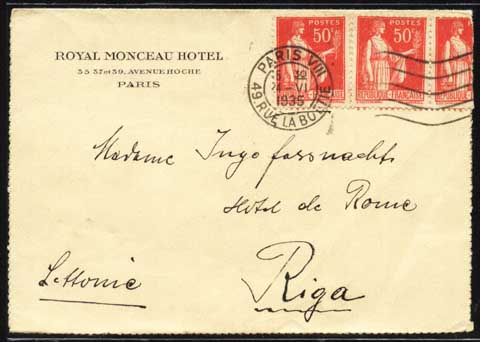 ROYAL MONCEAU HOTEL
35 37 et 39, AVENUE HOCHE
PARIS
POSTES
50c
REPUBLIQUE-FRANÇAISE
POSTES
50c
REPUBLIQUE-FRANÇAISE
PARIS VIII
VI
1935
49 RUE LA BOÉTIE
Madame Ingo
Hotel de Rome
Riga
Lettonie